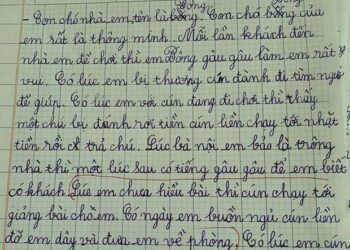 Bông Bông
- Con chó nhà em tên là bống. Con chó bống của
em rất là thông minh. Mỗi lần khách đến
nhà em để chơi thì em Bống gâu gâu làm em rất
vui. Có lúc em bị thương cún đành đi tìm người
để giúp. Có lúc em với cún đang đi chơi thì thấy
một chú bị đánh rơi tiền cún liền chạy tới nhặt
tiền rồi trả chú. Lúc bà nội em bảo là trông
nhà thì một lúc sau có tiếng gâu gâu để em biết
có khách. Lúc em chưa hiểu bài thì cún chạy tới
giảng bài cho em. Có ngày em buồn ngủ cún liền
đỡ em dậy và đưa em về phòng. Có lúc em cún